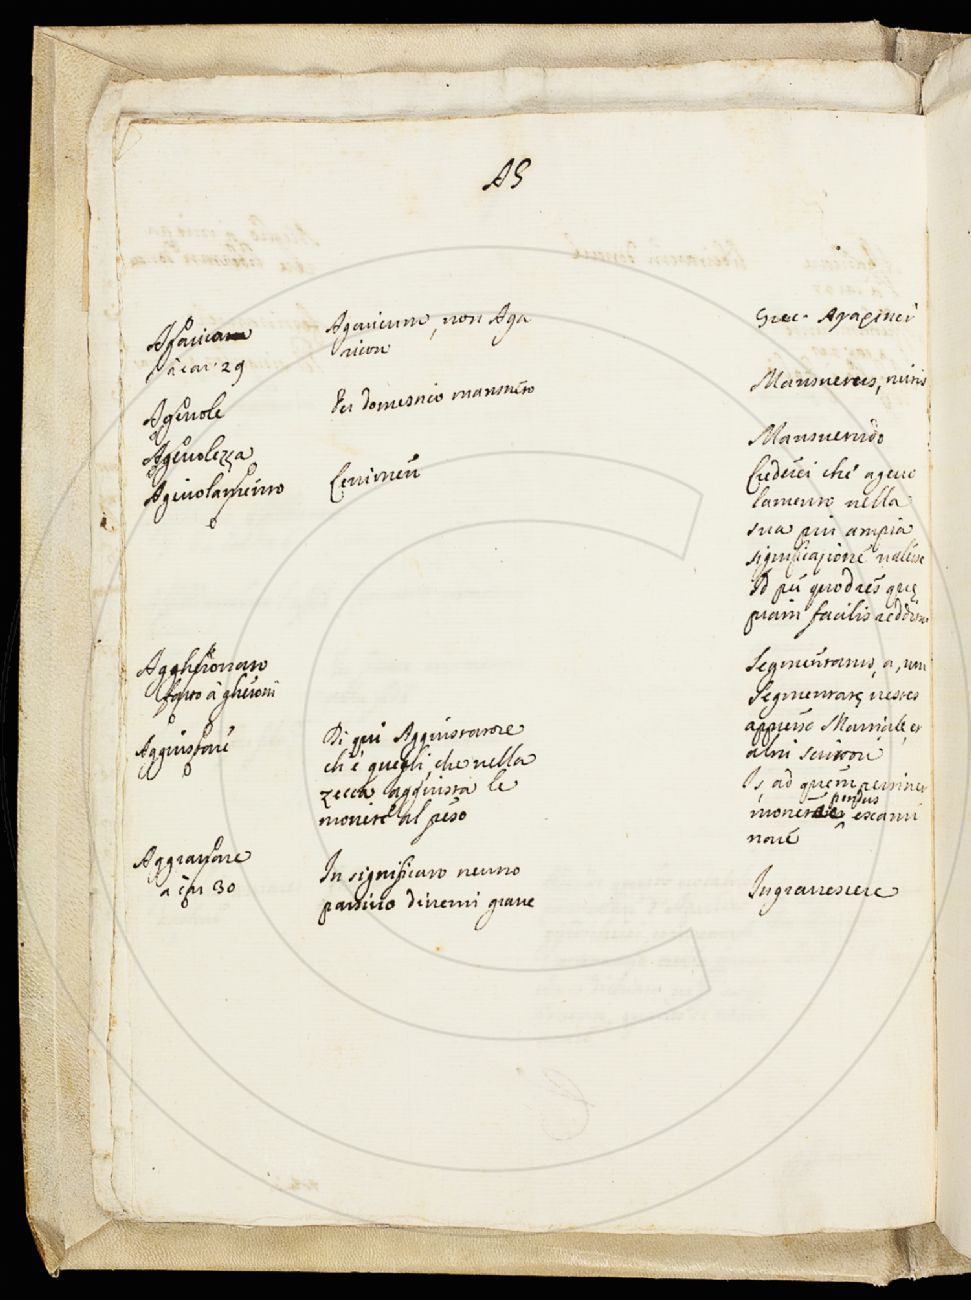 AG
Agarico
à car. 29
Agaricum, non Aga
ricon
Grec. Agapinci
Agevole
Per domestico mansueto
Mansuetus, mitis
Agevolezza
Mansuetudo
Agevolamento
Lenimen
Crederei che agevo
lamento nella
sua piu ampia
significazione valesse
id per quod res quę
piam facilis redditur
Aggheronato
fatto à gheroni
Segmentatus, a, um
Segmentatę vestes
appresso Marziale, et
altri scrittori
Aggiustare
Di qui Aggiustatore
ch'è quegli, che nella
zecca aggiusta le
monete al peso
Is, ad quem pertinet
monetae pondus
examinare
Aggravare
a car 30
In significato neutro
passivo divenir grave
Ingravescere